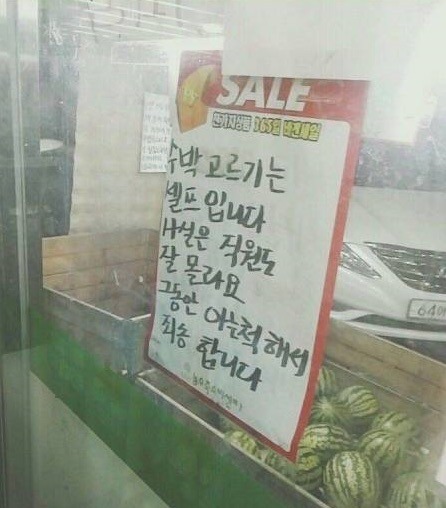 SALE
전기자상품 365일 바겐세일
수박 고르기는
셀프 입니다
사실은 직원도
잘 몰라요
그동안 아는척 해서
죄송 합니다
64